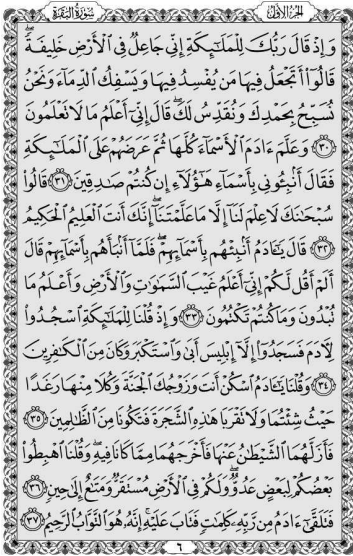 الجزء الأول سورة البقرة
وَإِذْ قَالَ رَبُّكَ لِلْمَلَٰٓئِكَةِ إِنِّى جَاعِلٌ فِى ٱلْأَرْضِ خَلِيفَةً ۖ
قَالُوٓا۟ أَتَجْعَلُ فِيهَا مَن يُفْسِدُ فِيهَا وَيَسْفِكُ ٱلدِّمَآءَ وَنَحْنُ
نُسَبِّحُ بِحَمْدِكَ وَنُقَدِّسُ لَكَ ۖ قَالَ إِنِّىٓ أَعْلَمُ مَا لَا تَعْلَمُونَ
﴿٣٠﴾ وَعَلَّمَ ءَادَمَ ٱلْأَسْمَآءَ كُلَّهَا ثُمَّ عَرَضَهُمْ عَلَى ٱلْمَلَٰٓئِكَةِ
فَقَالَ أَنۢبِـُٔونِى بِأَسْمَآءِ هَٰٓؤُلَآءِ إِن كُنتُمْ صَٰدِقِينَ ﴿٣١﴾ قَالُوا۟
سُبْحَٰنَكَ لَا عِلْمَ لَنَآ إِلَّا مَا عَلَّمْتَنَآ ۖ إِنَّكَ أَنتَ ٱلْعَلِيمُ ٱلْحَكِيمُ
﴿٣٢﴾ قَالَ يَٰٓـَٔادَمُ أَنۢبِئْهُم بِأَسْمَآئِهِمْ ۖ فَلَمَّآ أَنۢبَأَهُم بِأَسْمَآئِهِمْ قَالَ
أَلَمْ أَقُل لَّكُمْ إِنِّىٓ أَعْلَمُ غَيْبَ ٱلسَّمَٰوَٰتِ وَٱلْأَرْضِ وَأَعْلَمُ مَا
تُبْدُونَ وَمَا كُنتُمْ تَكْتُمُونَ ﴿٣٣﴾ وَإِذْ قُلْنَا لِلْمَلَٰٓئِكَةِ ٱسْجُدُوا۟
لِـَٔادَمَ فَسَجَدُوٓا۟ إِلَّآ إِبْلِيسَ أَبَىٰ وَٱسْتَكْبَرَ وَكَانَ مِنَ ٱلْكَٰفِرِينَ
﴿٣٤﴾ وَقُلْنَا يَٰٓـَٔادَمُ ٱسْكُنْ أَنتَ وَزَوْجُكَ ٱلْجَنَّةَ وَكُلَا مِنْهَا رَغَدًا
حَيْثُ شِئْتُمَا وَلَا تَقْرَبَا هَٰذِهِ ٱلشَّجَرَةَ فَتَكُونَا مِنَ ٱلظَّٰلِمِينَ ﴿٣٥﴾
فَأَزَلَّهُمَا ٱلشَّيْطَٰنُ عَنْهَا فَأَخْرَجَهُمَا مِمَّا كَانَا فِيهِ ۖ وَقُلْنَا ٱهْبِطُوا۟
بَعْضُكُمْ لِبَعْضٍ عَدُوٌّ ۖ وَلَكُمْ فِى ٱلْأَرْضِ مُسْتَقَرٌّ وَمَتَٰعٌ إِلَىٰ حِينٍ ﴿٣٦﴾
فَتَلَقَّىٰٓ ءَادَمُ مِن رَّبِّهِۦ كَلِمَٰتٍ فَتَابَ عَلَيْهِ ۚ إِنَّهُۥ هُوَ ٱلتَّوَّابُ ٱلرَّحِيمُ ﴿٣٧﴾
٦